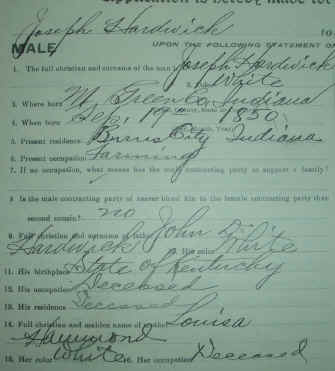 Application is hereby made for
Joseph Hardwick
TO
MALE UPON THE FOLLOWING STATEMENT OF
1. The full christian and surname of the man Joseph Hardwick
2. White
3. Where born Green Co. Indiana
4. When born Sep. 19th 1850
5. Present residence Burns City Indiana
6. Present occupation Farming
7. If no occupation, what means has the male contracting party to support a family?
8 Is the male contracting party of nearer blood kin to the female contracting party than
second cousin? no
9. Full christian and surname of father John D.
Hardwick His color White
11. His birthplace State of Kentucky
12. His occupation Deceased
13. His residence Deceased
14. Full christian and maiden name of mother Louisa
Hammond
15. Her color White 16. Her occupation Deceased